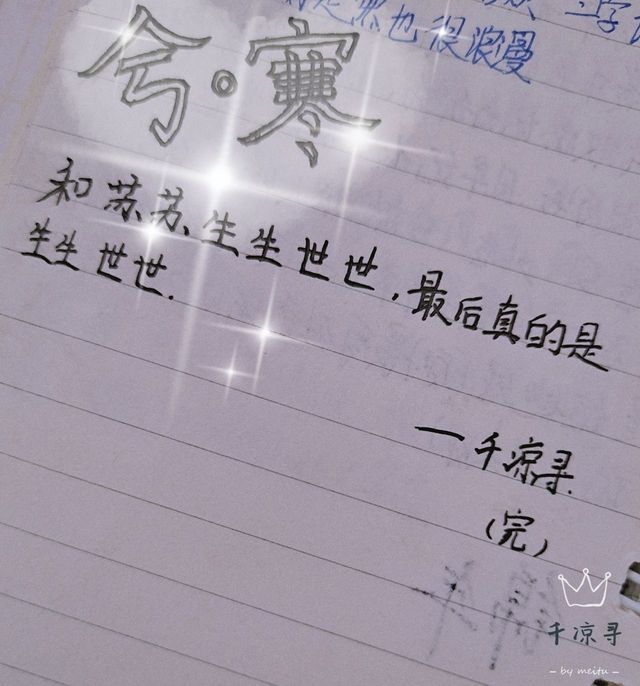 也很浪漫
兮·寒
和苏苏生生世世,最后真的是
生生世世.
一千凉寻.
(完)
千凉寻
- by meitu -